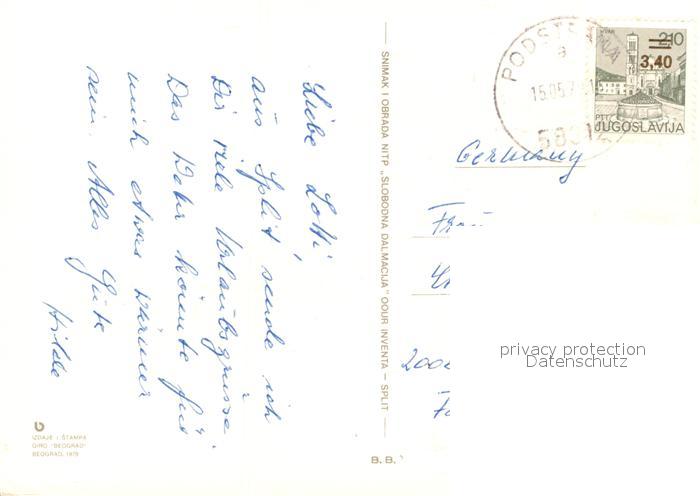 Liebe Lotti,
aus Split sende ich
Dir viele Urlaubsgrüsse.
Das Wetter könnte für
mich etwas wärmer
sein. Alles Gute
Hilde
SNIMAK I OBRADA NITP „SLOBODNA DALMACIJA" OOUR INVENTA — SPLIT
HVAR
2,10
3,40
PTT
JUGOSLAVIJA
PODSTRANA
15.05.7
Germany
200
privacy protection
Datenschutz
IZDAJE I ŠTAMPA
GIRO "BEOGRAD"
BEOGRAD, 1979
B.B.